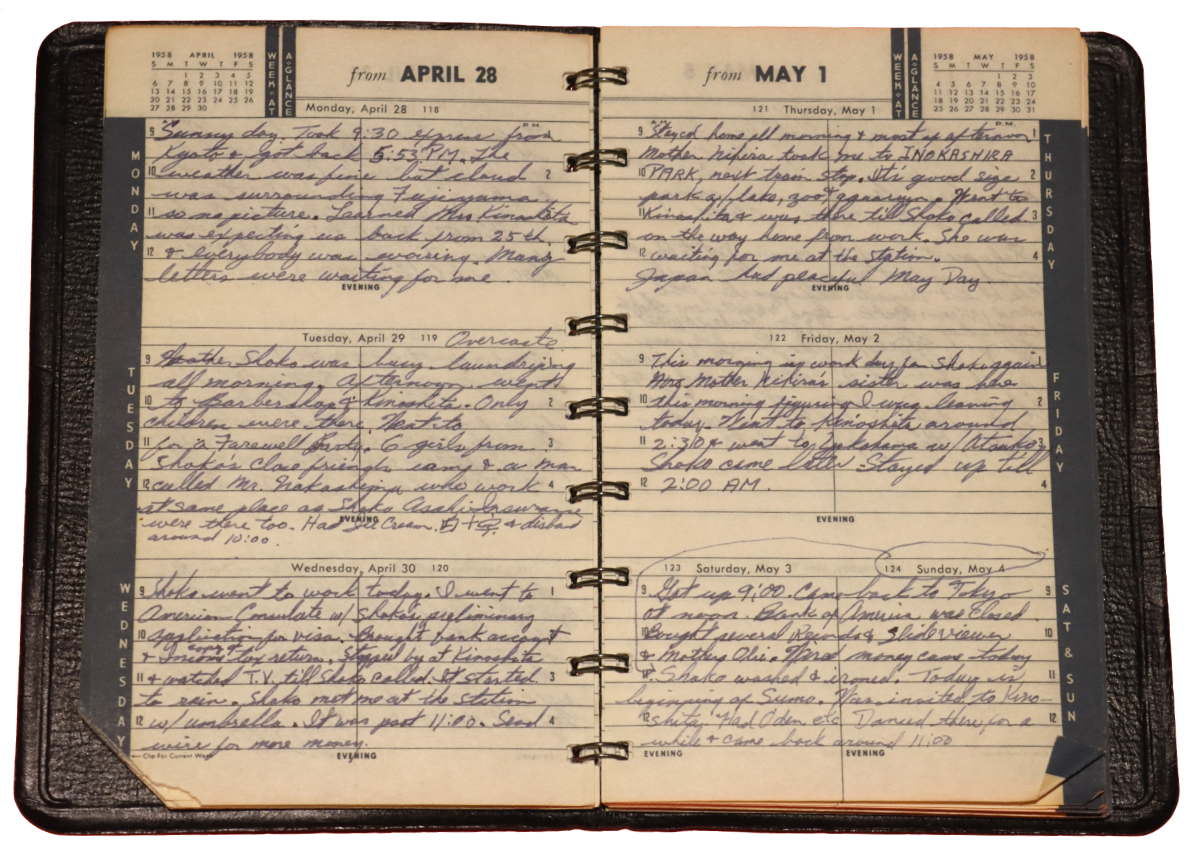 1958 APRIL 1958
S M T W T F S
1 2 3 4 5
6 7 8 9 10 11 12
13 14 15 16 17 18 19
20 21 22 23 24 25 26
27 28 29 30
WEEK-AT
A-GLANCE
from APRIL 28
Monday, April 28 118
MONDAY
9 Sunny day. Took 9:30 express from
P.M.
Kyoto & got back 5:53 P.M. The
10 weather was fine but cloud 2
was surrounding Fujiyama
11 so no picture. Learned Mrs Kinoshita
was expecting us back from 25th,
12 & everybody was waiting. Many
letters were waiting for me.
EVENING
Tuesday, April 29 119 Overcast
TUESDAY
9 Shoko was busy laundrying 1
all morning. Afternoon went
10 to Barbershop & Kinoshita. Only 2
children were there. Went to
11 for a Farewell Party. 6 girls from 3
Shoko's close friends came & a man
12 called Mr. Nakashima who work 4
at same place as Shoko Asahi Insurance
EVENING
were there too. Had Ice Cream. & disband
around 10:00.
Wednesday, April 30 120
WEDNESDAY
9 Shoko went to work today. I went to 1
American Consulate w/ Shoko's preliminary
10 application for visa. Brought bank account 2
copy of
& Income tax return. Stopped by at Kinoshita
11 & watched T.V. till Shoko called. It started 3
to rain. Shoko met me at the station
12 w/ umbrella. It was past 11:00. Send 4
wire for more money.
Clip For Current Week
EVENING
1958 MAY 1958
S M T W T F S
1 2 3
4 5 6 7 8 9 10
11 12 13 14 15 16 17
18 19 20 21 22 23 24
25 26 27 28 29 30 31
WEEK-AT
A-GLANCE
from MAY 1
121 Thursday, May 1
THURSDAY
A.M. P.M.
9 Stayed home all morning & most of afternoon 1
Mother Nihira took me to INOKASHIRA
10 PARK, next train stop. It's good size 2
park w/ lake, zoo & aquarium. Went to
11 Kinoshita & was there till Shoko called 3
on the way home from work. She was
12 waiting for me at the station. 4
Japan had peaceful May Day.
EVENING
122 Friday, May 2
FRIDAY
9 This morning is work day for Shoko again 1
Mother Nihira's sister was here
10 this morning figuring I was leaving 2
today. Went to Kinoshita around
11 2:30 & went to Yokohama w/ Atsuko 3
Shoko came later Stayed up till
12 2:00 AM. 4
EVENING
123 Saturday, May 3 124 Sunday, May 4
SAT & SUN
9 Got up 9:00. Came back to Tokyo 9
at noon. Bank of America was closed
10 Bought several & Slide viewer 10
& Mothers money came today
11 Shoko washed & ironed. Today is 11
beginning of Sumo. Was invited to Kino-
12 shita. Had Oden etc Danced there for a 12
while & came back around 11:00
EVENING EVENING